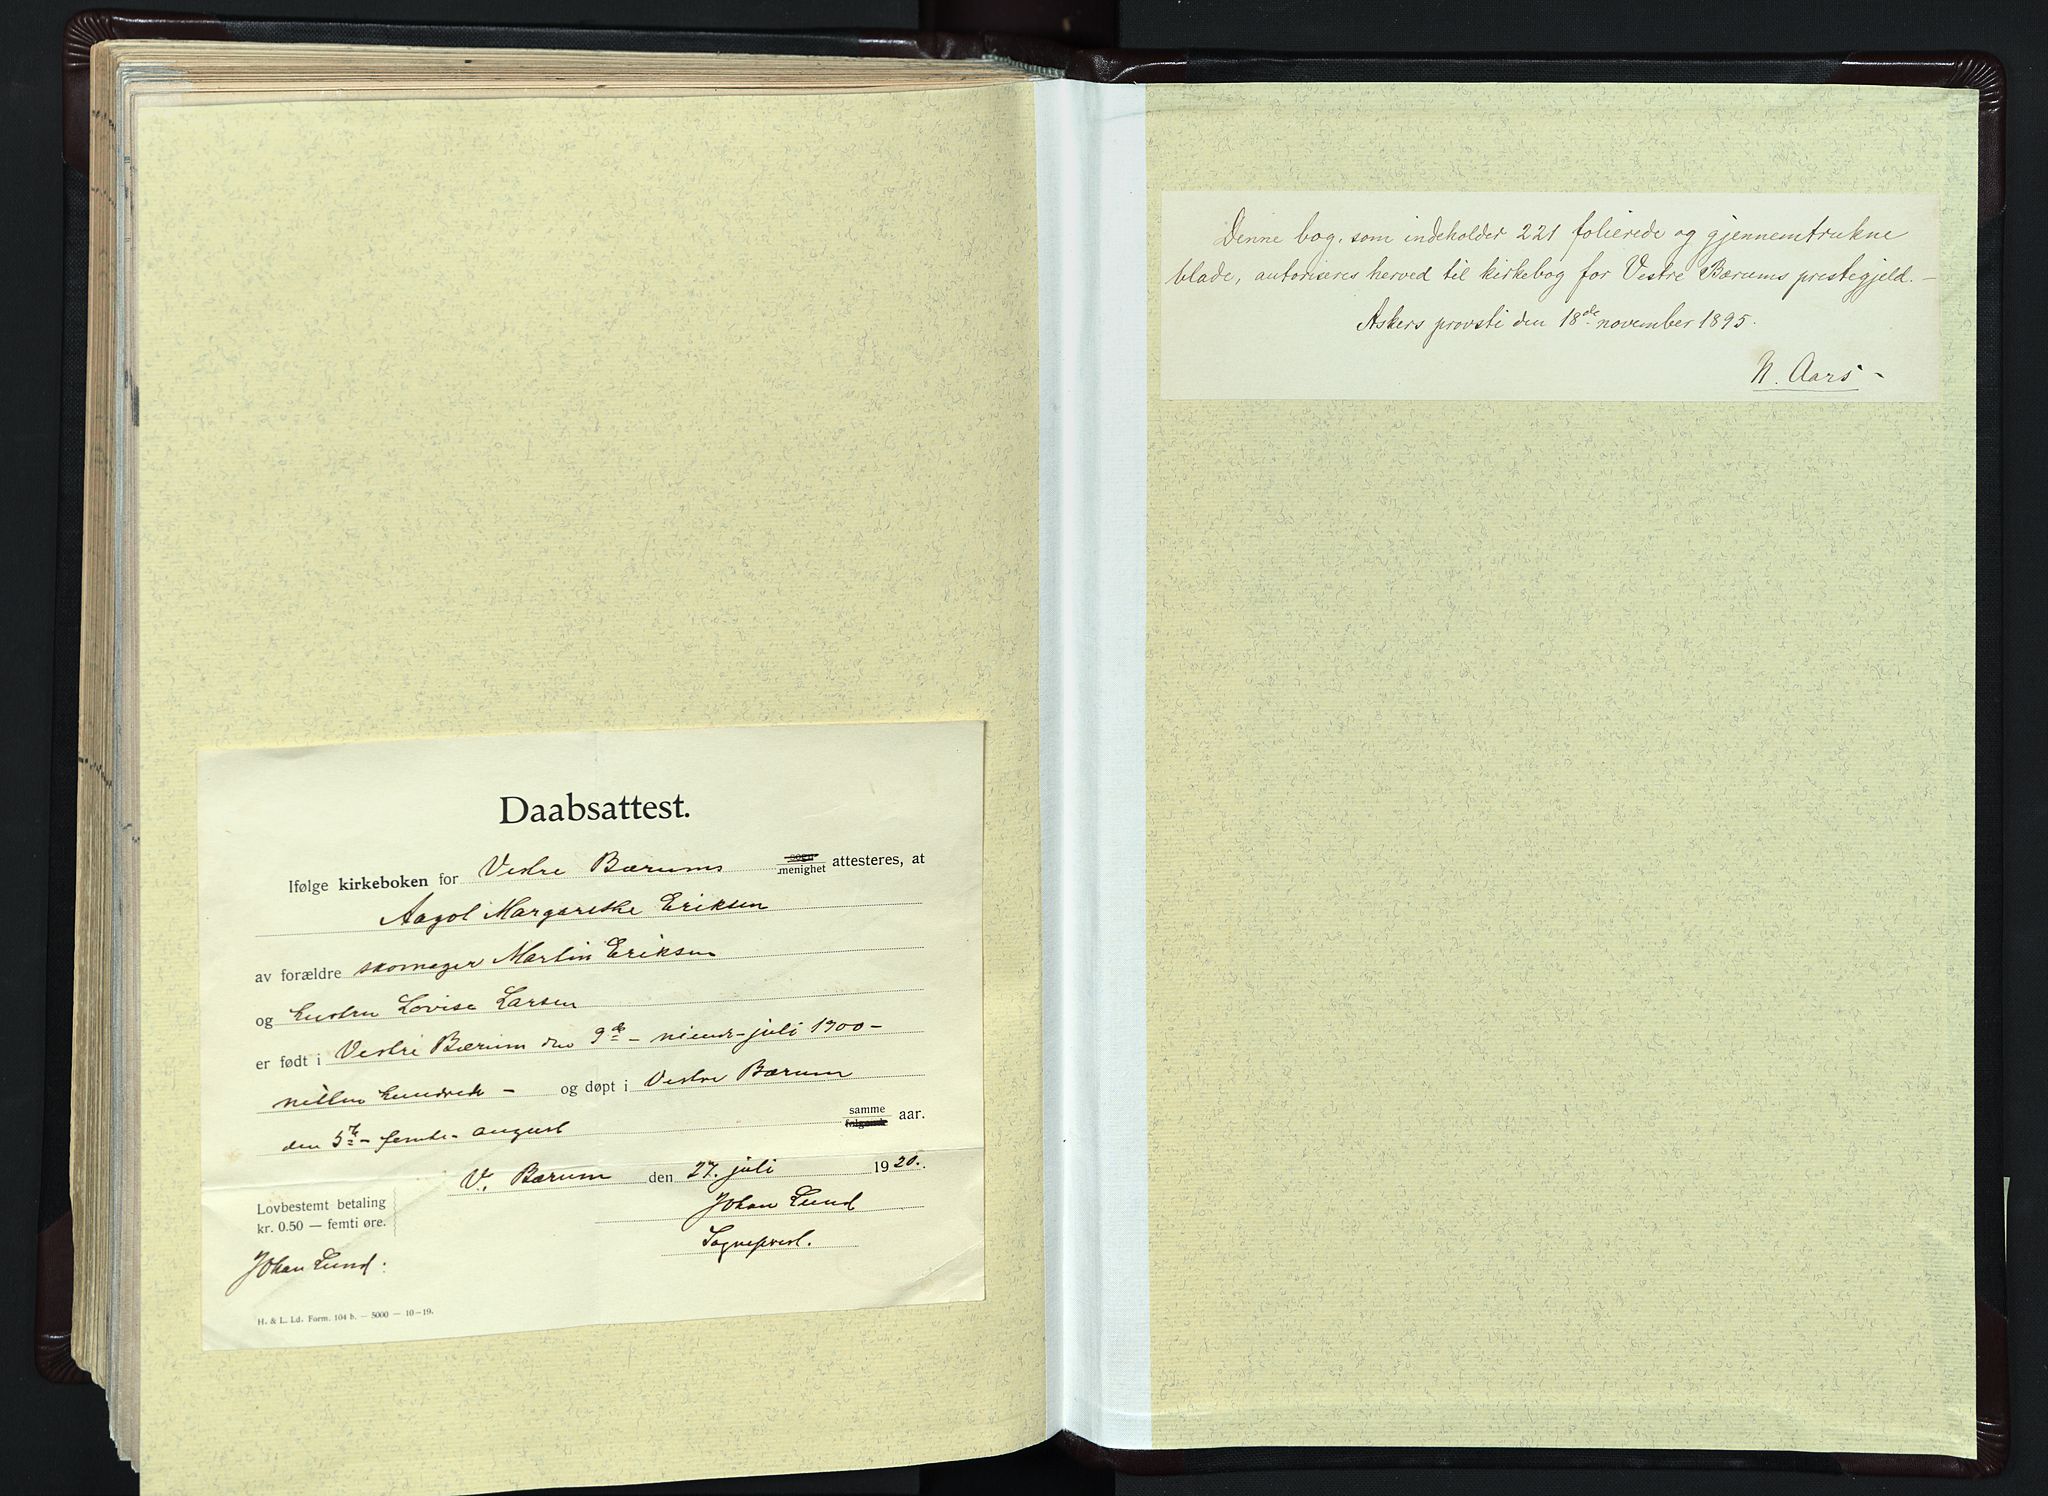 Daabsattest.
Ifølge kirkeboken for Vestre Bærums sogn menighet attesteres, at
Aagot Margarethe Eriksen
av forældre skomager Martin Eriksen
og hustru Lovise Larsen
er født i Vestre Bærum den 9de – niende – juli 1900 –
nitten hundrede – og døpt i Vestre Bærum
den 5te – femte – august samme følgende aar.
V. Bærum den 27. juli 1920.
Lovbestemt betaling
kr. 0.50 — femti øre.
Johan Lund
Sogneprest.
Johan Lund.
H. & L. Ld. Form. 104 b. — 5000 — 10-19.
Denne bog, som indeholder 221 folierede og gjennemtrukne
blade, autoriseres herved til kirkebog for Vestre Bærums prestegjeld. –
Askers provsti den 18de november 1895.
N. Aars –